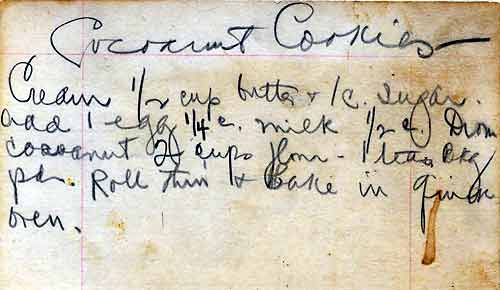 Cocoanut Cookies
Cream 1/2 cup butter & 1 c. sugar.
add 1 egg 1/4 c. milk 1/2 c. Drom
cocoanut 2 cups flour - 1 teas Bkg
pdr. Roll thin & bake in quick
oven.